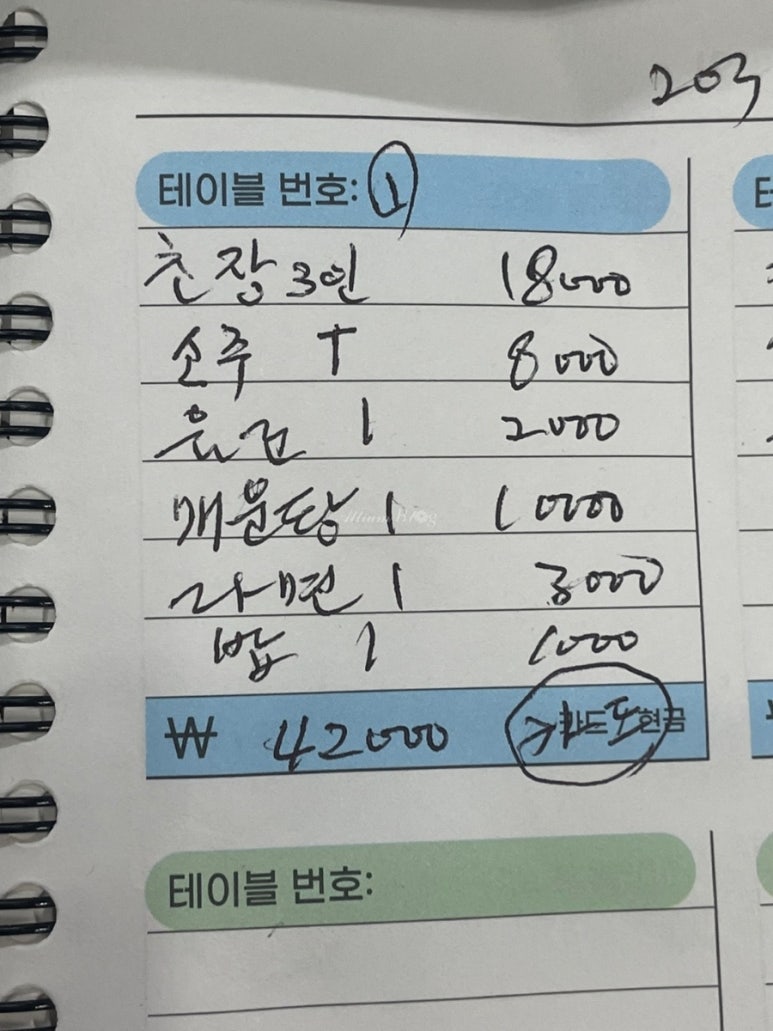 203
테이블 번호: 1
초장 3인 18000
소주 T 8000
음료 1 2000
매운탕 1 10000
라면 1 3000
밥 1 1000
₩ 42000 카드 현금
테이블 번호: